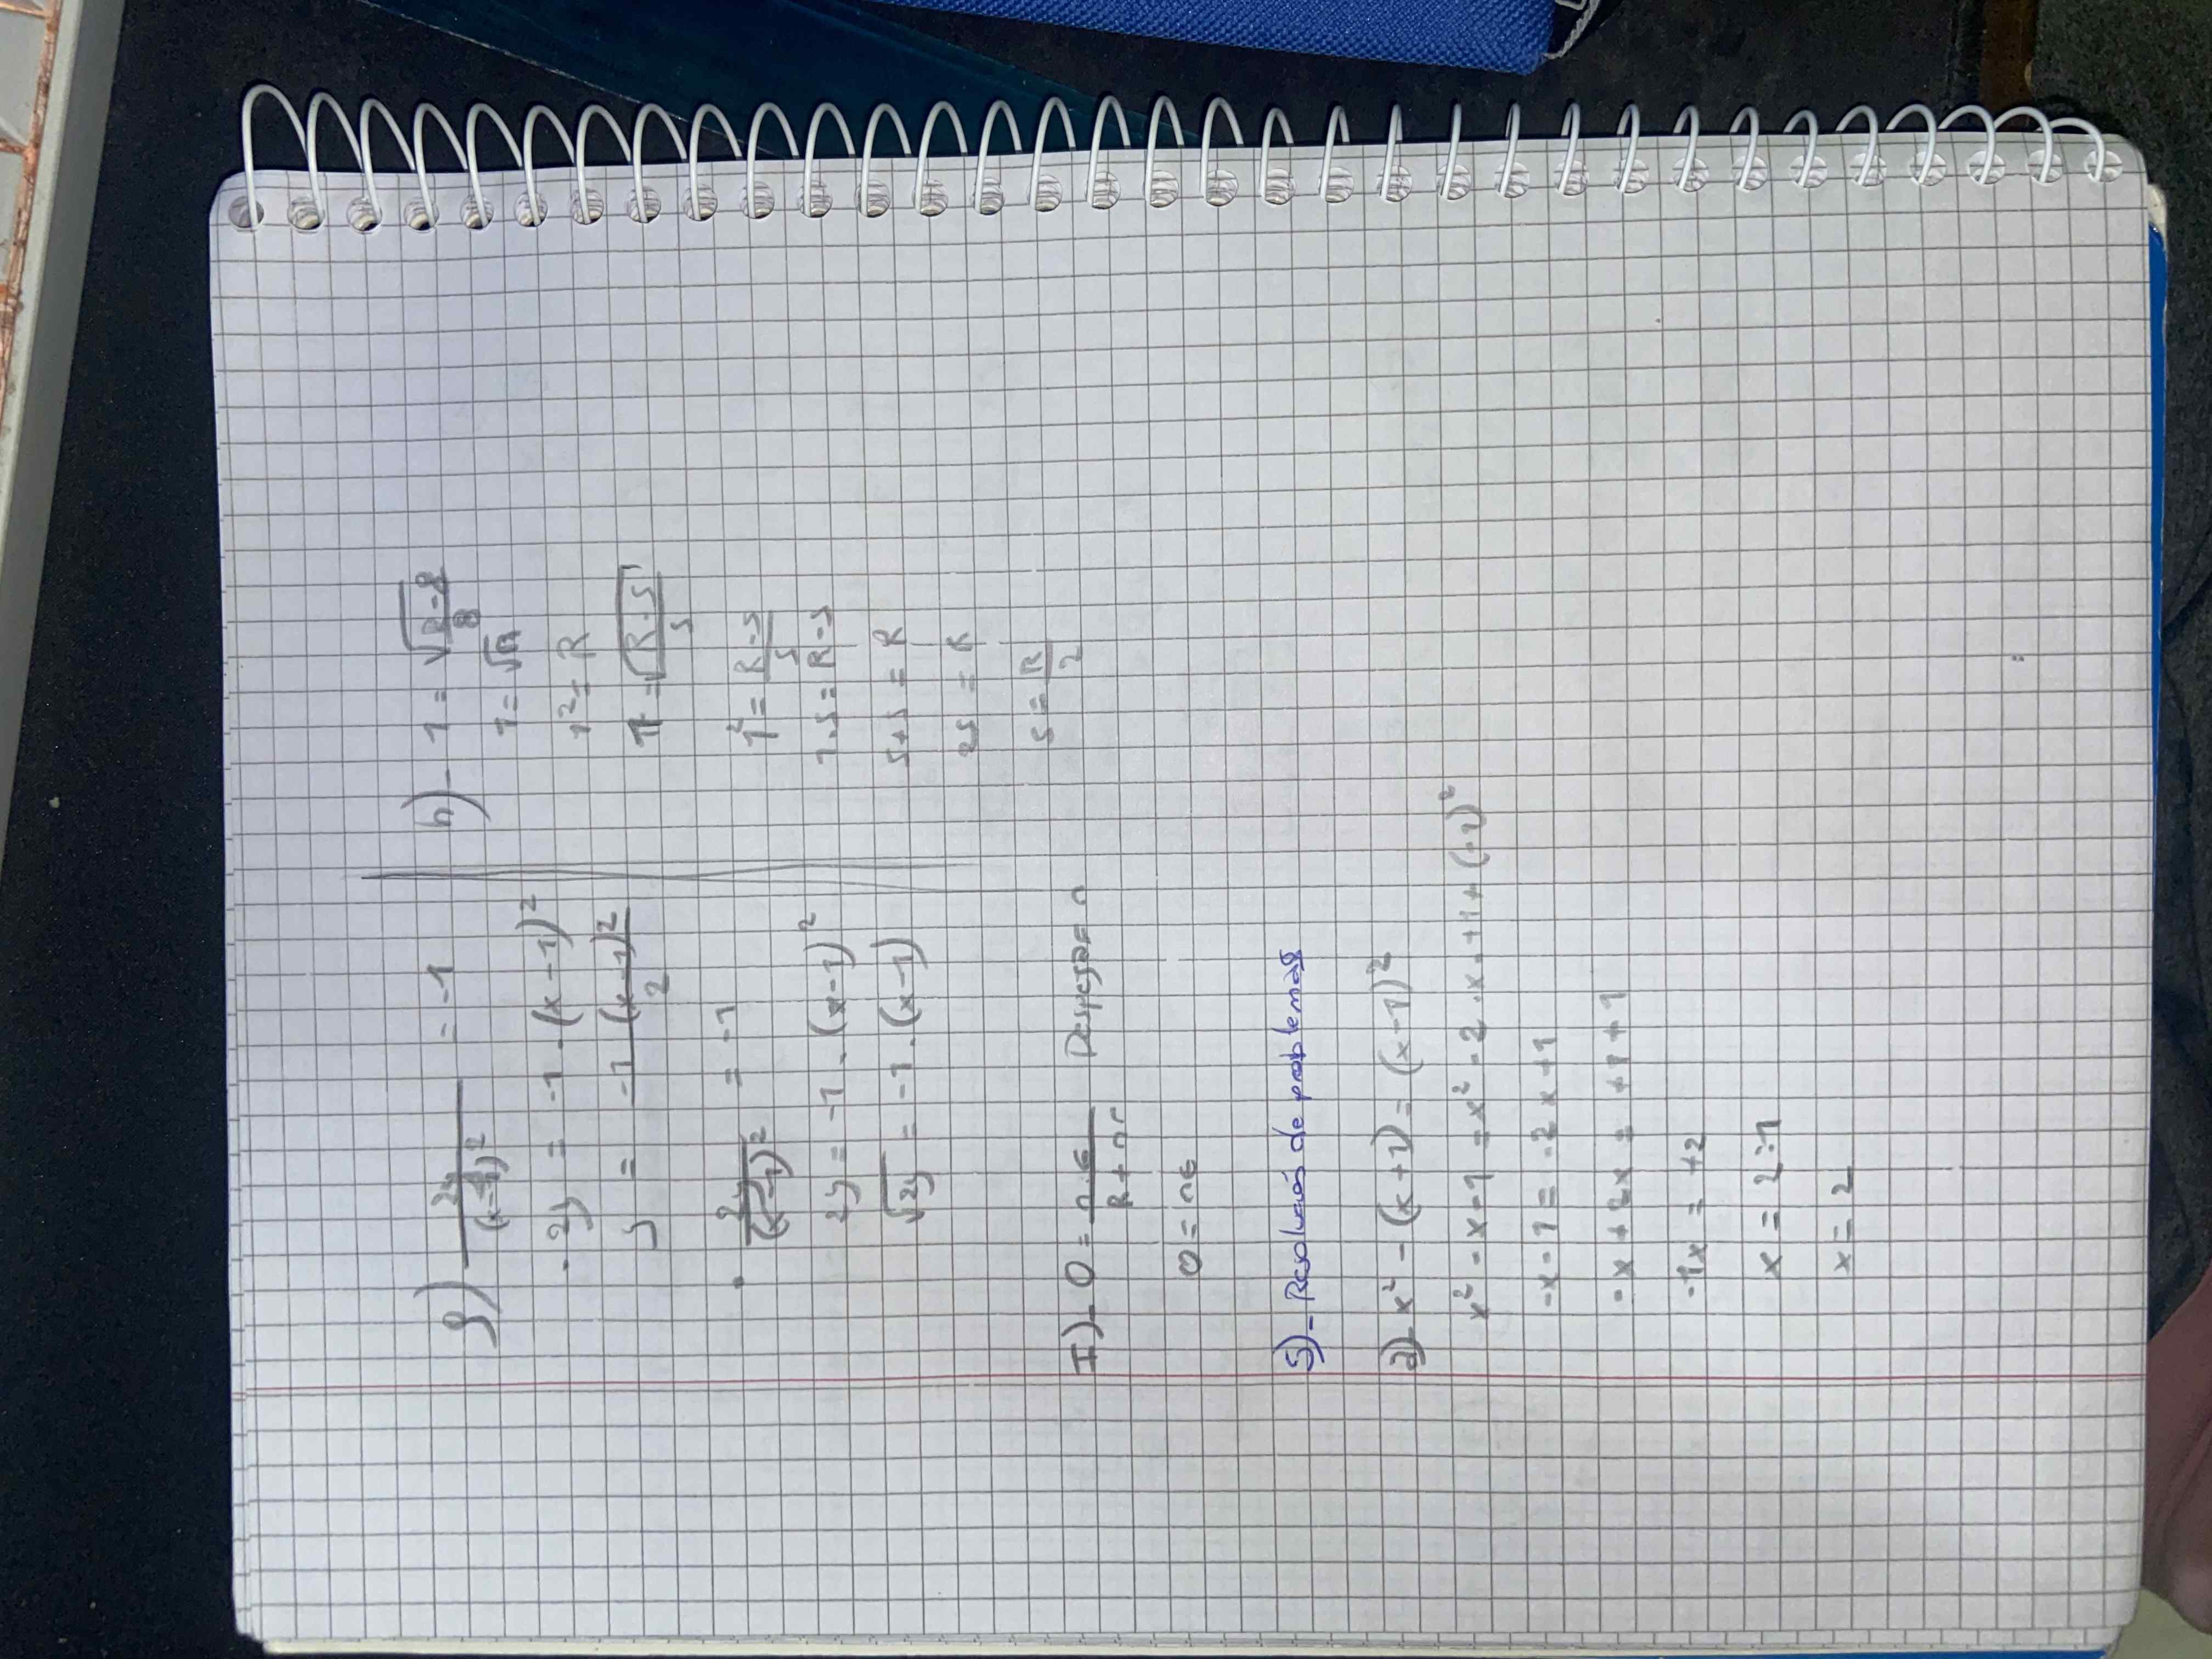 g) 2y/(x-1)² = -1
· 2y = -1 · (x-1)²
y = -1 (x-1)²/2
· 2y/(x-1)² = -1
2y = -1 · (x-1)²
√2y = -1 · (x-1)
h)- 1 = √R-8/8
1 = √R
1² = R
1 = √R-S/S
1² = R-S/S
1·S = R-S
S+S = R
2S = R
S = R/2
I)- 0 = n·E/R+nr Despejar n
0 = nE
5)- Resolución de problemas
a)- x² - (x+1) = (x-1)²
x² - x - 1 = x² - 2·x·+1+(-1)²
-x - 1 = -2x+1
-x + 2x = +1+1
-1x = +2
x = 2:1
x = 2